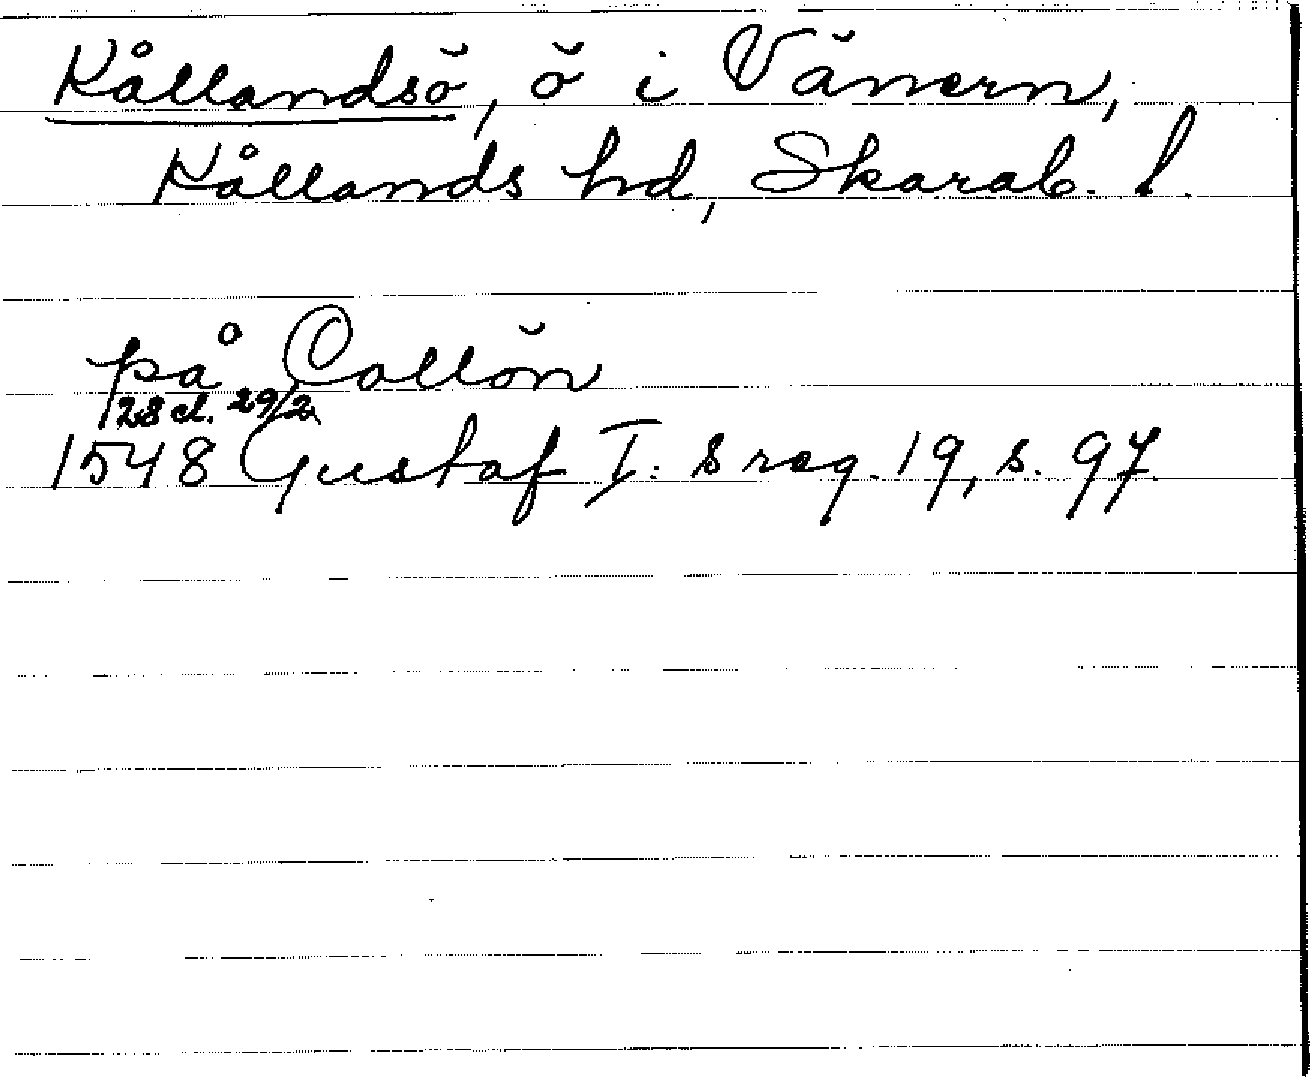 Kållandsö, ö i Vänern,
Kållands hd, Skarab. l.
på Collön
28 el. 29/2
1548 Gustaf I:s reg. 19, s. 97.